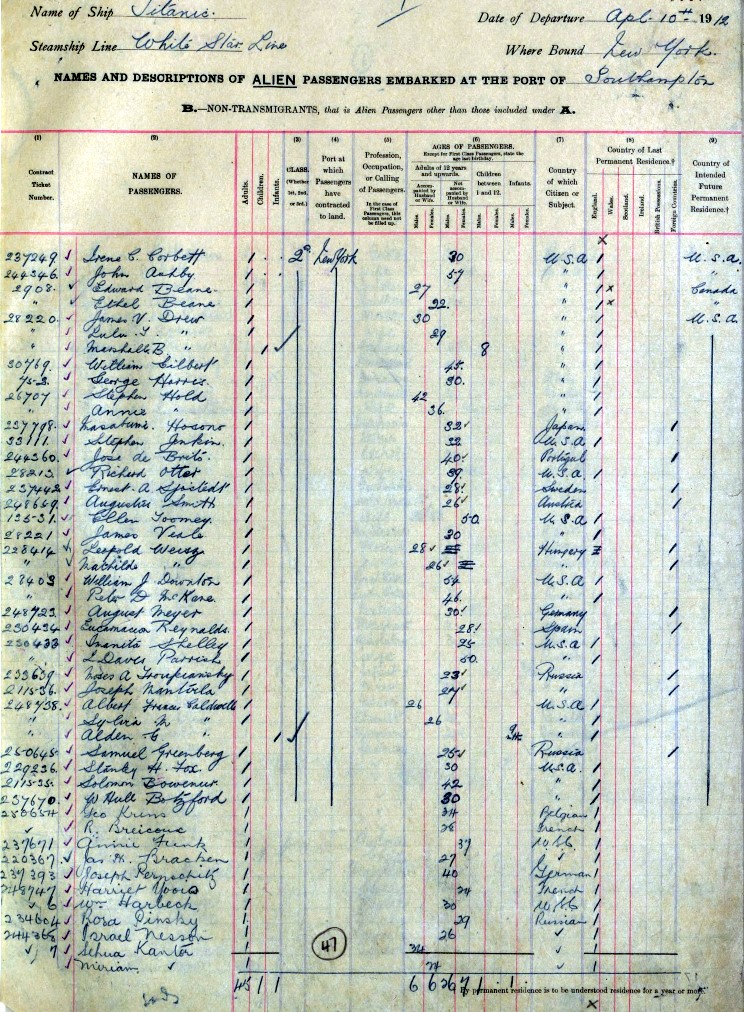 Name of Ship Titanic. Date of Departure Apl. 10th 1912
Steamship Line White Star Line Where Bound New York.
NAMES AND DESCRIPTIONS OF ALIEN PASSENGERS EMBARKED AT THE PORT OF Southampton
B.—NON-TRANSMIGRANTS, that is Alien Passengers other than those included under A.
(1) (2) (3) (4) (5) (6) (7) (8) (9)
Contract Ticket Number. NAMES OF PASSENGERS. Adults. Children. Infants. CLASS. (Whether 1st, 2nd, or 3rd.) Port at which Passengers have contracted to land. Profession, Occupation, or Calling of Passengers. In the case of First Class Passengers, this column need not be filled up. AGES OF PASSENGERS. Except for First Class Passengers, state the age last birthday. Adults of 12 years and upwards. Accompanied by Husband or Wife. Not accompanied by Husband or Wife. Children between 1 and 12. Infants. Males. Females. Males. Females. Males. Females. Males. Females. Country of which Citizen or Subject. Country of Last Permanent Residence.† England. Wales. Scotland. Ireland. British Possessions. Foreign Countries. Country of Intended Future Permanent Residence.†
237249 Irene C. Corbett 1 2nd New York 30 U.S.A 1 U.S.a.
244346 John Ashby 1 57 " 1 "
2908 Edward Beane 1 27 " 1 x Canada
" Ethel Beane 1 22 " 1 x "
28220 James V. Drew 1 30 " 1 U.S.A.
" Lulu T. " 1 29 " 1
" Marshall B. " 1 8 " 1
30769 William Gilbert 1 45 " 1
George Harris 1 30 " 1
26707 Stephen Hold 1 42 " 1
" Annie " 1 36 " 1
237798 Masabumi Hosono 1 32 Japan 1
33111 Stephen Jenkin 1 32 U.S.A 1
244360 Jose de Brito 1 40 Portugal 1
28213 Richard Otter 1 39 U.S.A 1
237442 Ernst A Sjöstedt 1 28 Sweden 1
248659 Augustus Smith 1 26 Austria 1
Ellen Toomey 1 50 U.S.A 1
28221 James Veale 1 30 " 1
228414 Leopold Weisz 1 28 Hungary
" Mathilde " 1 26 "
28403 William J Downton 1 54 U.S.A 1
" Peter D McKane 1 46 " 1
248723 August Meyer 1 30 Germany 1
230434 Encarnacion Reynalds 1 28 Spain 1
230433 Imanita Shelley 1 25 U.S.A 1
" L Davis Parrish 1 50 " 1
233639 Moses A Troupiansky 1 23 Russia 1
Joseph Mantvila 1 27 " 1
248738 Albert Francis Caldwell 1 26 U.S.A 1
" Sylvia M " 1 26 " 1
" Alden G " 1 " 1
250645 Samuel Greenberg 1 25 Russia 1
229236 Stanley H. Fox 1 30 U.S.A. 1
Solomon Bowenur 1 42 " 1
237670 W Hull Botsford 1 30 " 1
Geo Krins 1 Belgian 1
R. Breicoux 1 French 1
237671 Annie Funk 1 37 1
220367 Jas H. Bracken 1 27 1
237393 Joseph Fernschitz 1 40 German 1
248747 Harriet 1 24 French 1
Wm Harbeck 1 30 1
234604 Rosa Pinsky 1 29 Russian 1
244368 Israel Nesson 1 26 1
Sehua Kantor 1 34 1
Miriam 1 24 1
47
45 1 1 6 6 26 7 1 1
† By permanent residence is to be understood residence for a year or more.